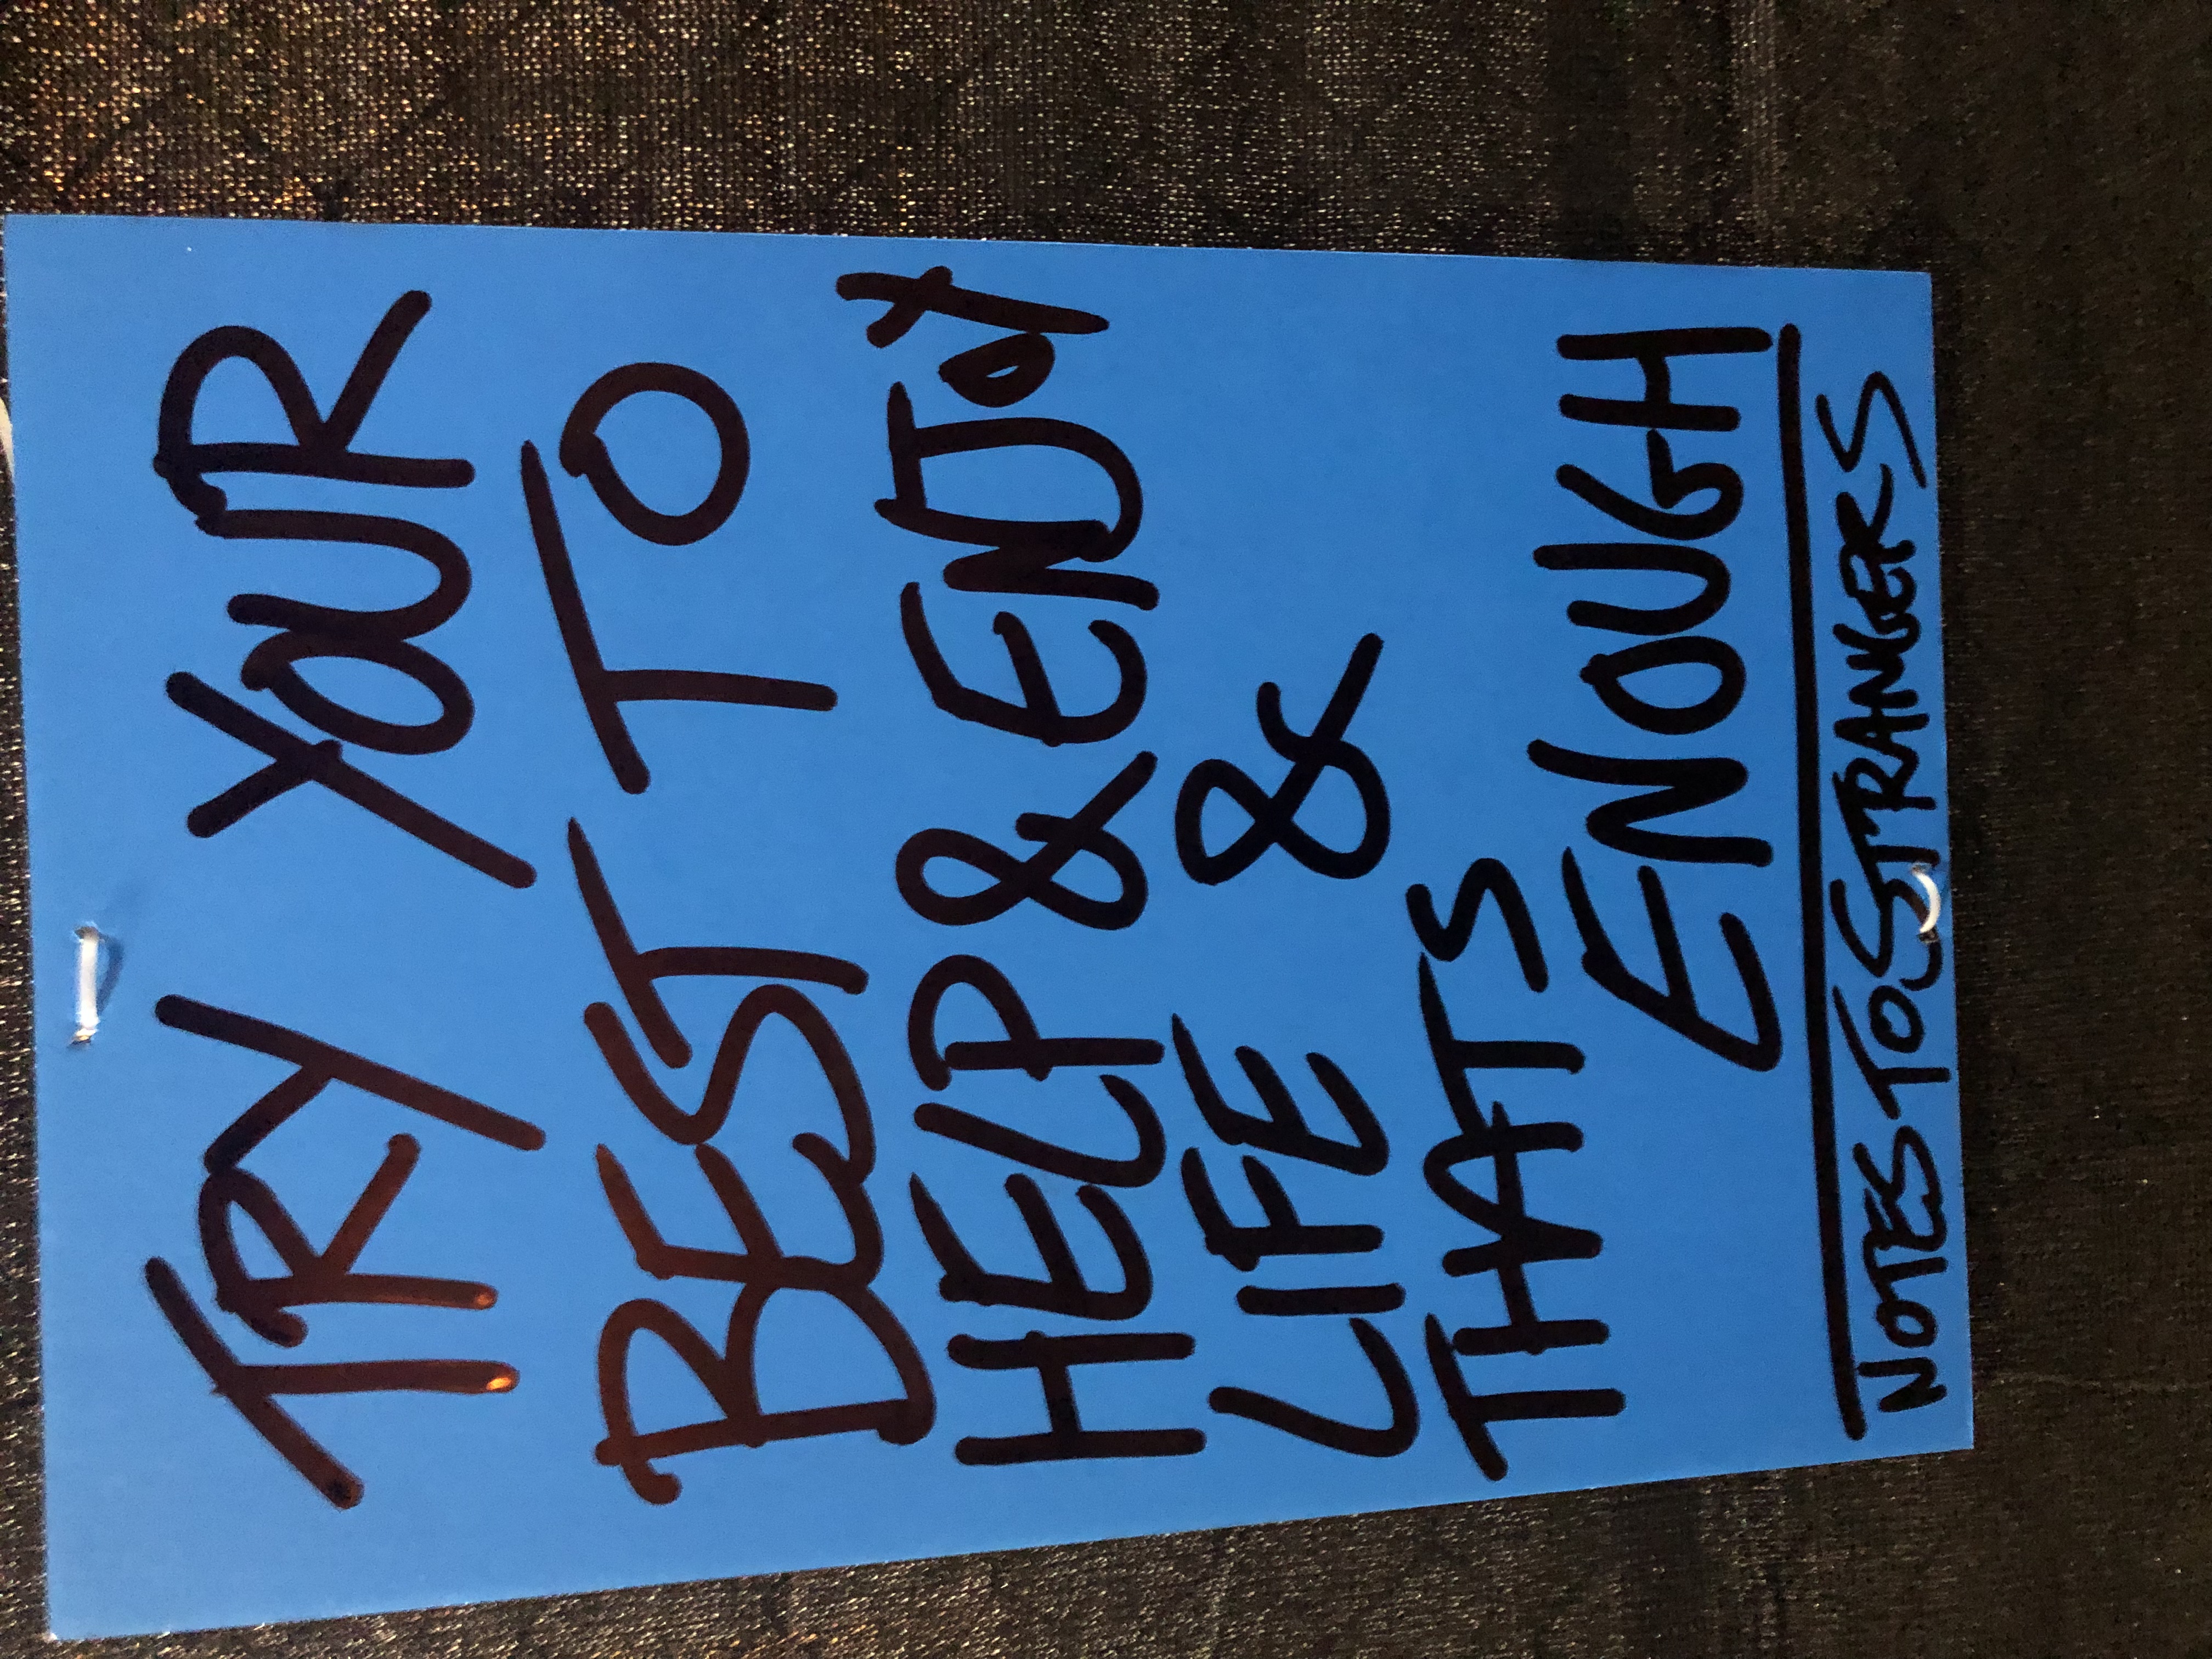 TRY YOUR
BEST TO
HELP & ENJOY
LIFE &
THATS
ENOUGH
NOTES TO STRANGERS